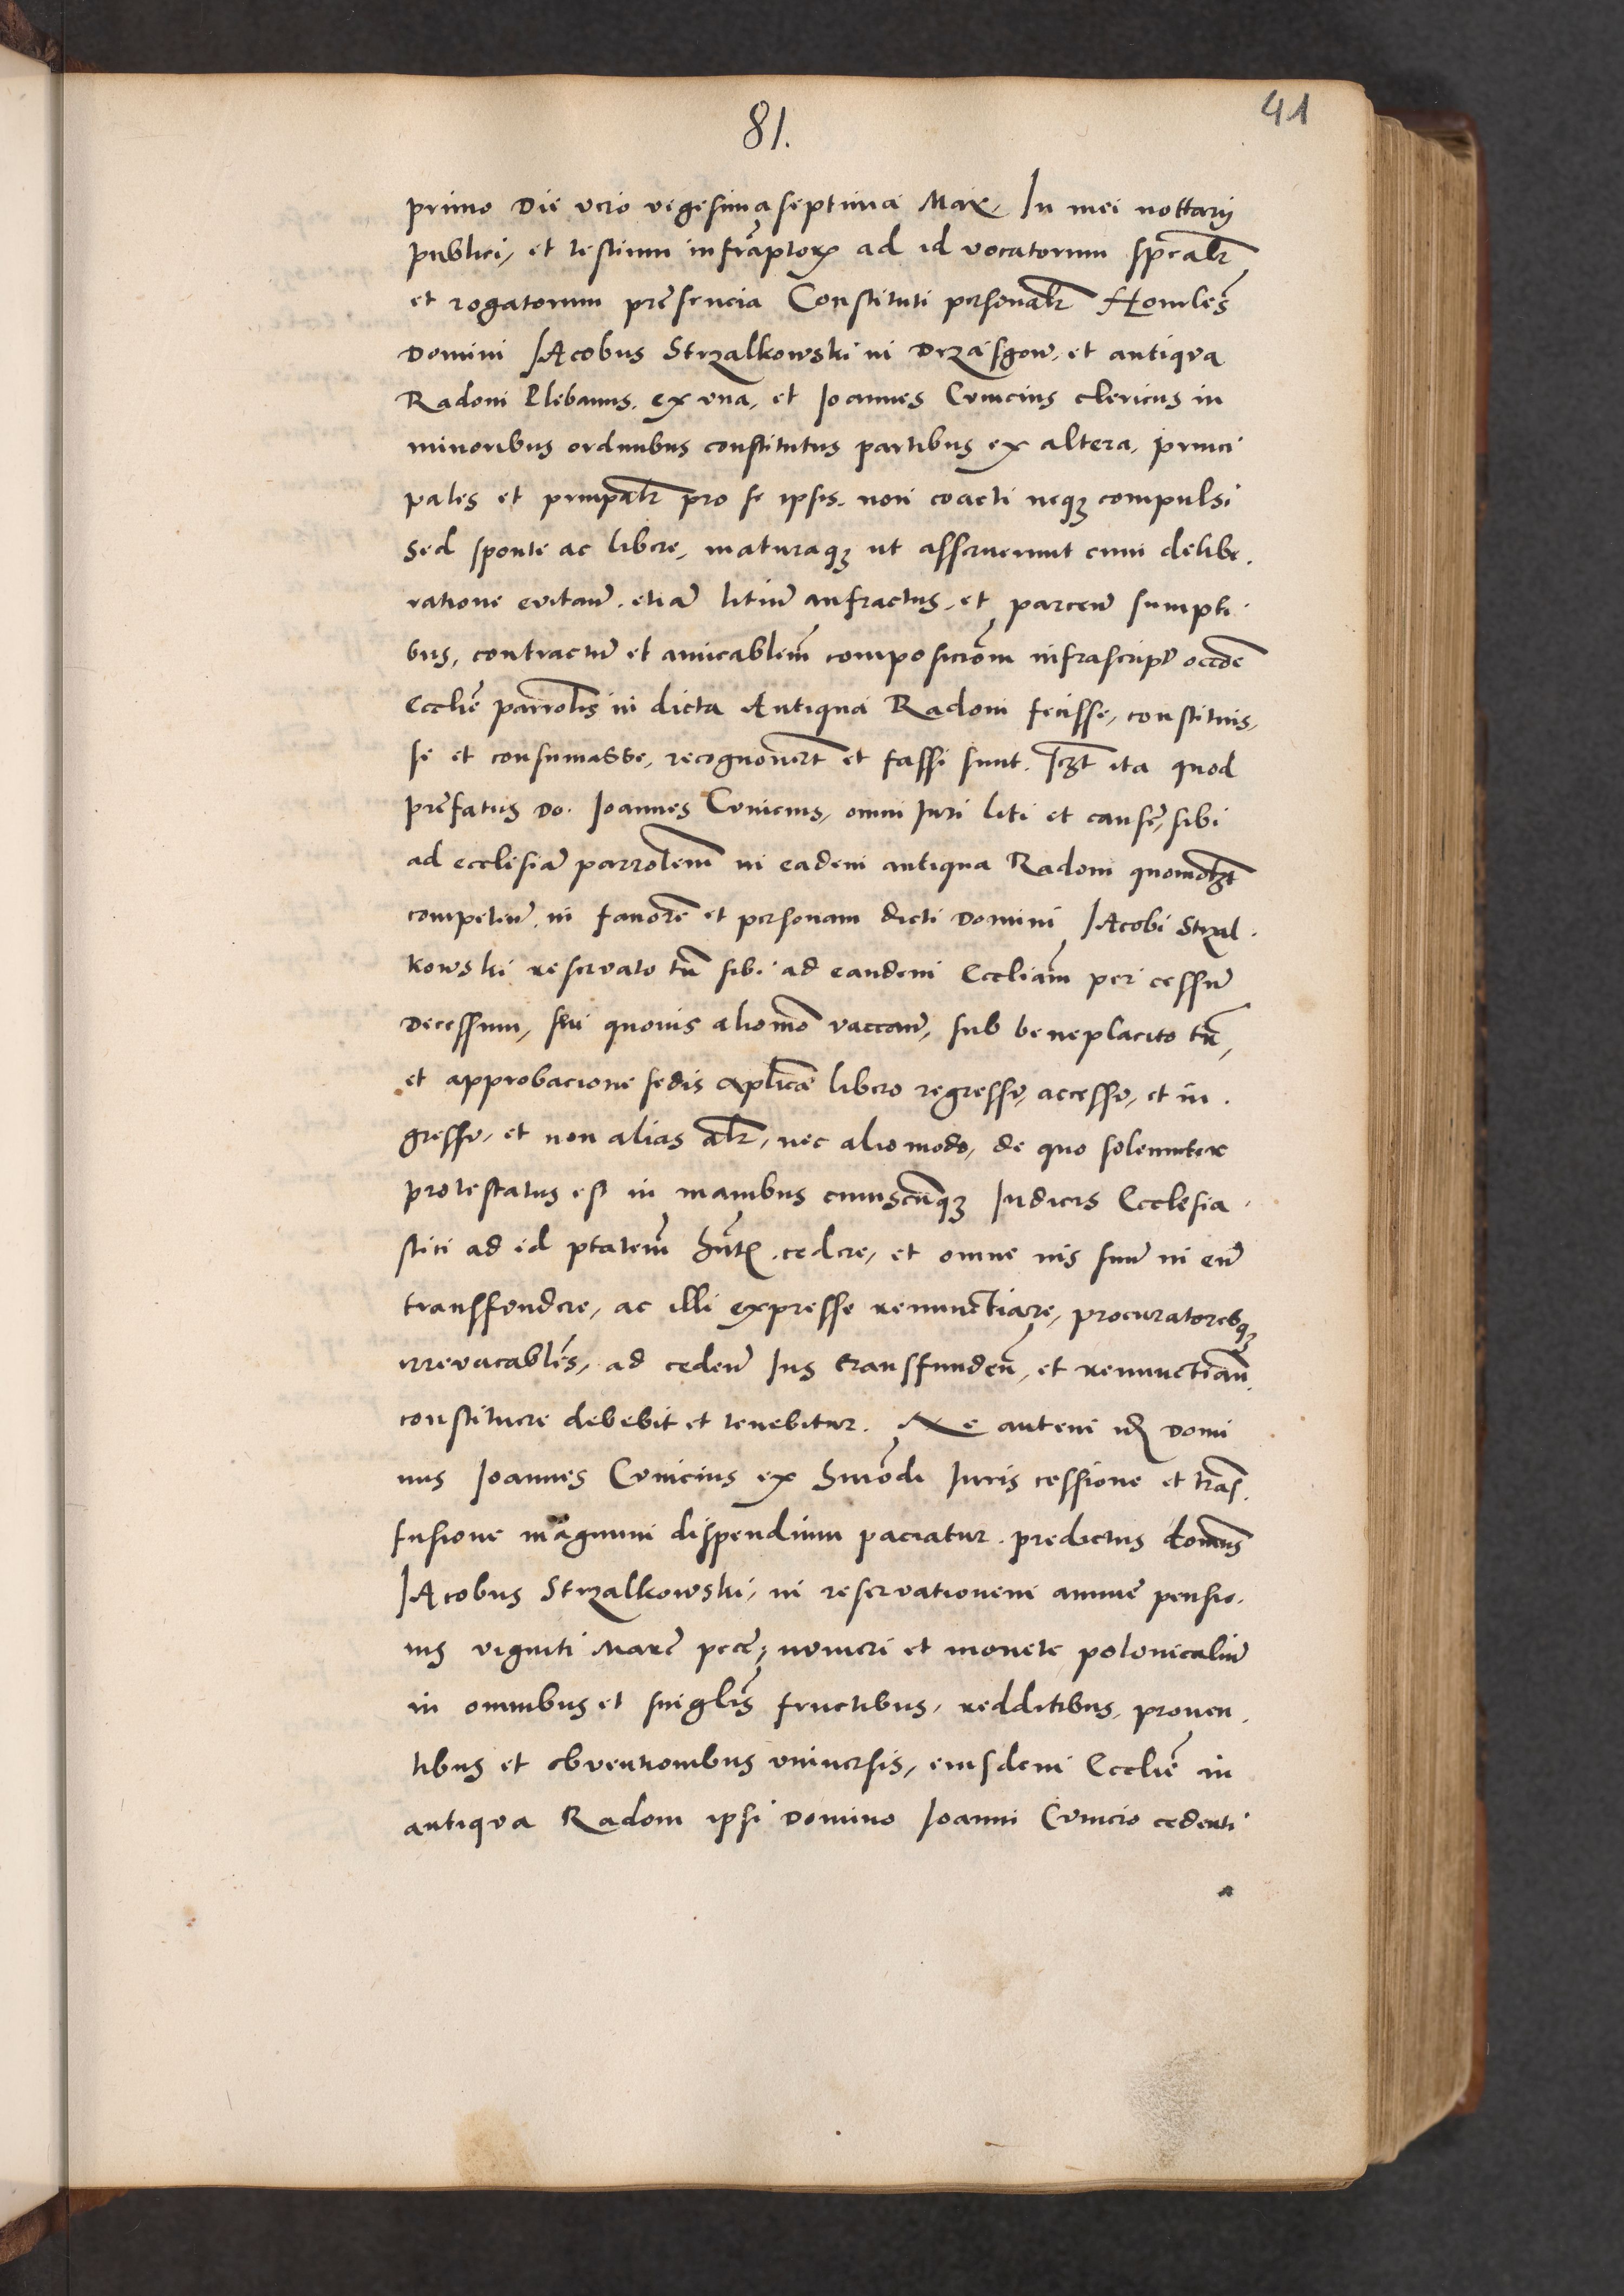 41
81.
primo Die vero vigesima septima Maij. In mei nottarij
publici, et testium infrascriptorꝝ ad id vocatorum specialr̃
et rogatorum presencia Constituti personalr̃ Honrabiles
Domini Jacobus Strzalkowski in Drzasgow, et antiqva
Radom Plebanus, ex vna, et Joannes Cvnicius clericus in
minoribus ordinibus constitutus partibus ex altera, princi
pales et prinpalr̃ pro se ipsis, non coacti neqꝫ compulsi
sed sponte ac libere, maturaqꝫ ut asseruerunt cum delibe.
ratione evitan̄. etiā litiū anfractus, et parcen̄ sumpti.
bus, contractū et amicablem̄ composiciōm infrascript̄ occōe
Ecclie parrolis in dicta Antiqua Radom fecisse, constituis,
se et consumasse, recognovert̄ et fassi sunt. ita quod
prefatus Do. Joannes Cvnicius, omni Juri liti et cause, sibi
ad ecclesiā parrolem̄ in eadem antiqua Radom quomolꝫt
competen̄. in favorē et personam dicti Domini Jacobi Strzal.
kowski reservato tn̄ sibi ad eandem Eccliam̄ per cessū
Decessum, seu quovis aliomō vaccan̄, sub beneplacito tn̄,
et approbacione sedis Aplicæ libero regressu, accessu, et in.
gressu, et non alias alr̃, nec alio modo, de quo solenniter
protestatus est in manibus cuiuscunqꝫ Judicis Ecclesia.
stici ad id ptatem̄ hn̄tis. cedere, et omne ius suū in eū
transfundere, ac illi expresse renunctiare, procuratoresqꝫ
irrevocables, ad ceden̄ Jus transfunden̄, et renunctian̄.
constituere debebit et tenebitur. Ne autem idē Domi
nus Joannes Cvnicius ex hmōdi Juris cessione et trāsf.
fusione magnum dispendium paciatur. predictus domīns
Jacobus Strzalkowski, in reservationem annue pensio.
nis viginti Marc̄ pecē, numeri et monete polonicaliū
in omnibus et singlis fructibus, redditibus, proven.
tibus et obventionibus vniversis, eiusdem Ecclie in
antiqva Radom ipsi Domino Joanni Cvnicio cedenti